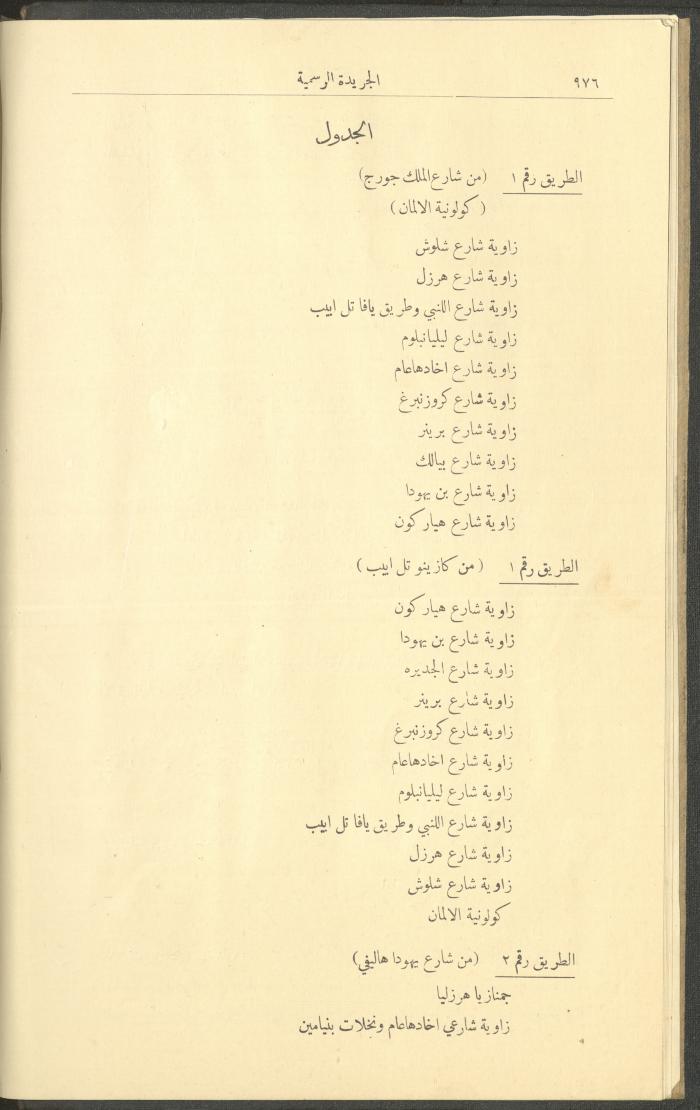 ٩٧٦
الجريدة الرسمية
الجدول
الطريق رقم ١ (من شارع الملك جورج)
( كولونية الالمان )
زاوية شارع شلوش
زاوية شارع هرزل
زاوية شارع اللنبي وطريق يافا تل ابيب
زاوية شارع ليليانبلوم
زاوية شارع اخادهاعام
زاوية شارع كروزنبرغ
زاوية شارع برينر
زاوية شارع بيالك
زاوية شارع بن يهودا
زاوية شارع هياركون
الطريق رقم ١ ( من كازينو تل ابيب )
زاوية شارع هياركون
زاوية شارع بن يهودا
زاوية شارع الجديره
زاوية شارع برينر
زاوية شارع كروزنبرغ
زاوية شارع اخادهاعام
زاوية شارع ليليانبلوم
زاوية شارع اللنبي وطريق يافا تل ابيب
زاوية شارع هرزل
زاوية شارع شلوش
كولونية الالمان
الطريق رقم ٢ (من شارع يهودا هاليفي)
جمنازيا هرزليا
زاوية شارعي اخادهاعام ونخلات بنيامين